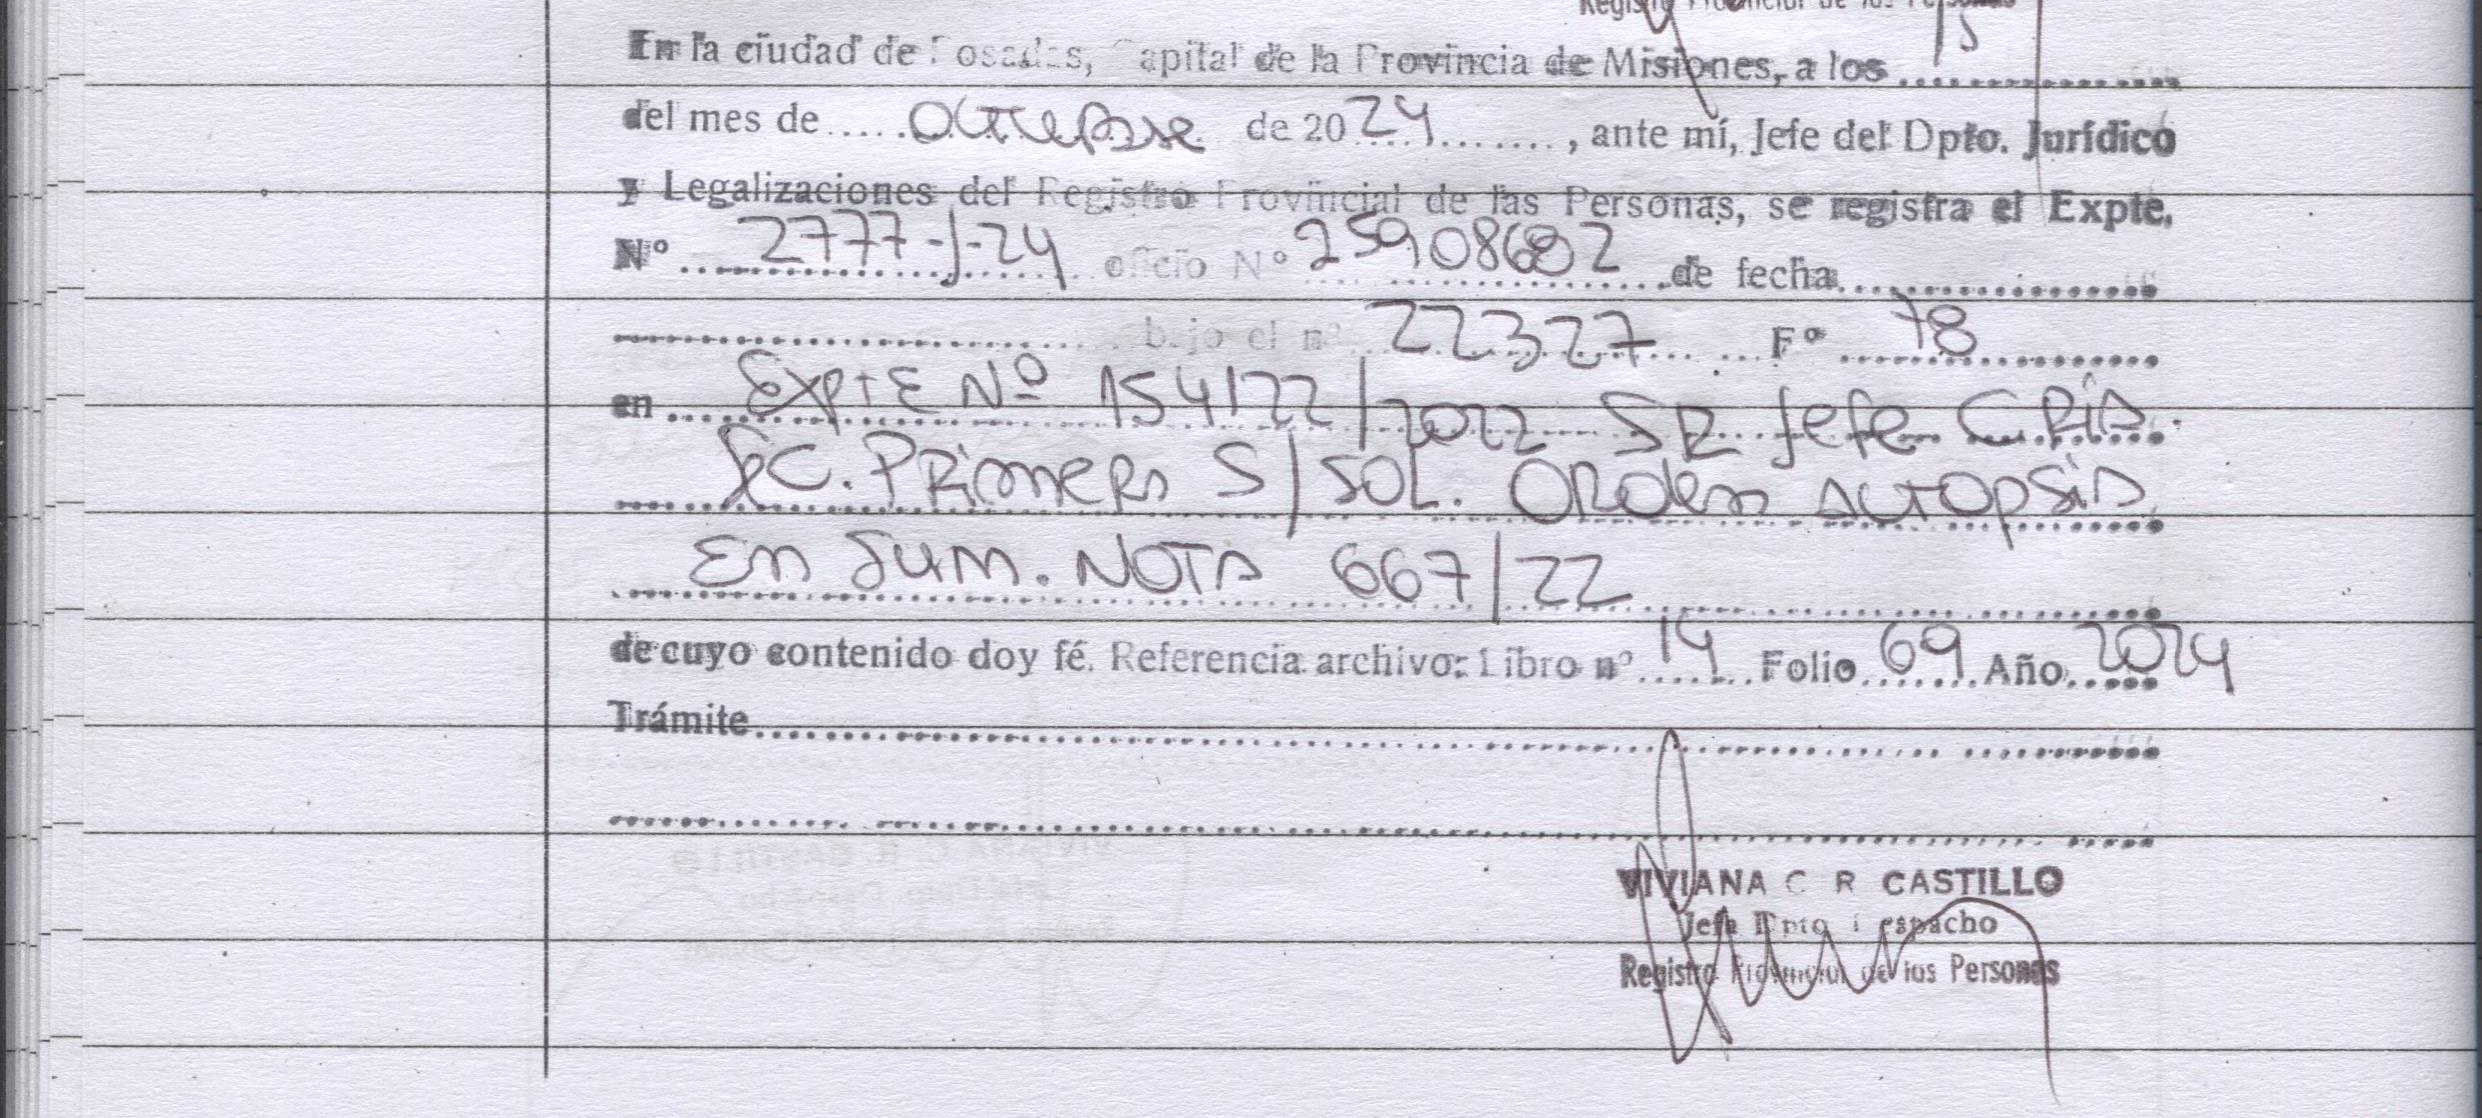 Registro Provincial de las Personas
En la ciudad de Posadas, Capital de la Provincia de Misiones, a los 15
del mes de octubre de 2024, ante mí, Jefe del Dpto. Jurídico
y Legalizaciones del Registro Provincial de las Personas, se registra el Expte.
Nº 2777-J-24 oficio Nº de fecha
bajo el nº 22327 Fº 78
en Expte Nº 154122/2022 SR Jefe CRIA.
SC. Primera S/ SOL. Orden Autopsia
En Sum. NOTA 667/22
de cuyo contenido doy fé. Referencia archivo: Libro nº 14 Folio 69 Año 2024
Trámite
VIVIANA C R CASTILLO
Jefa Dpto Despacho
Registro Provincial de las Personas